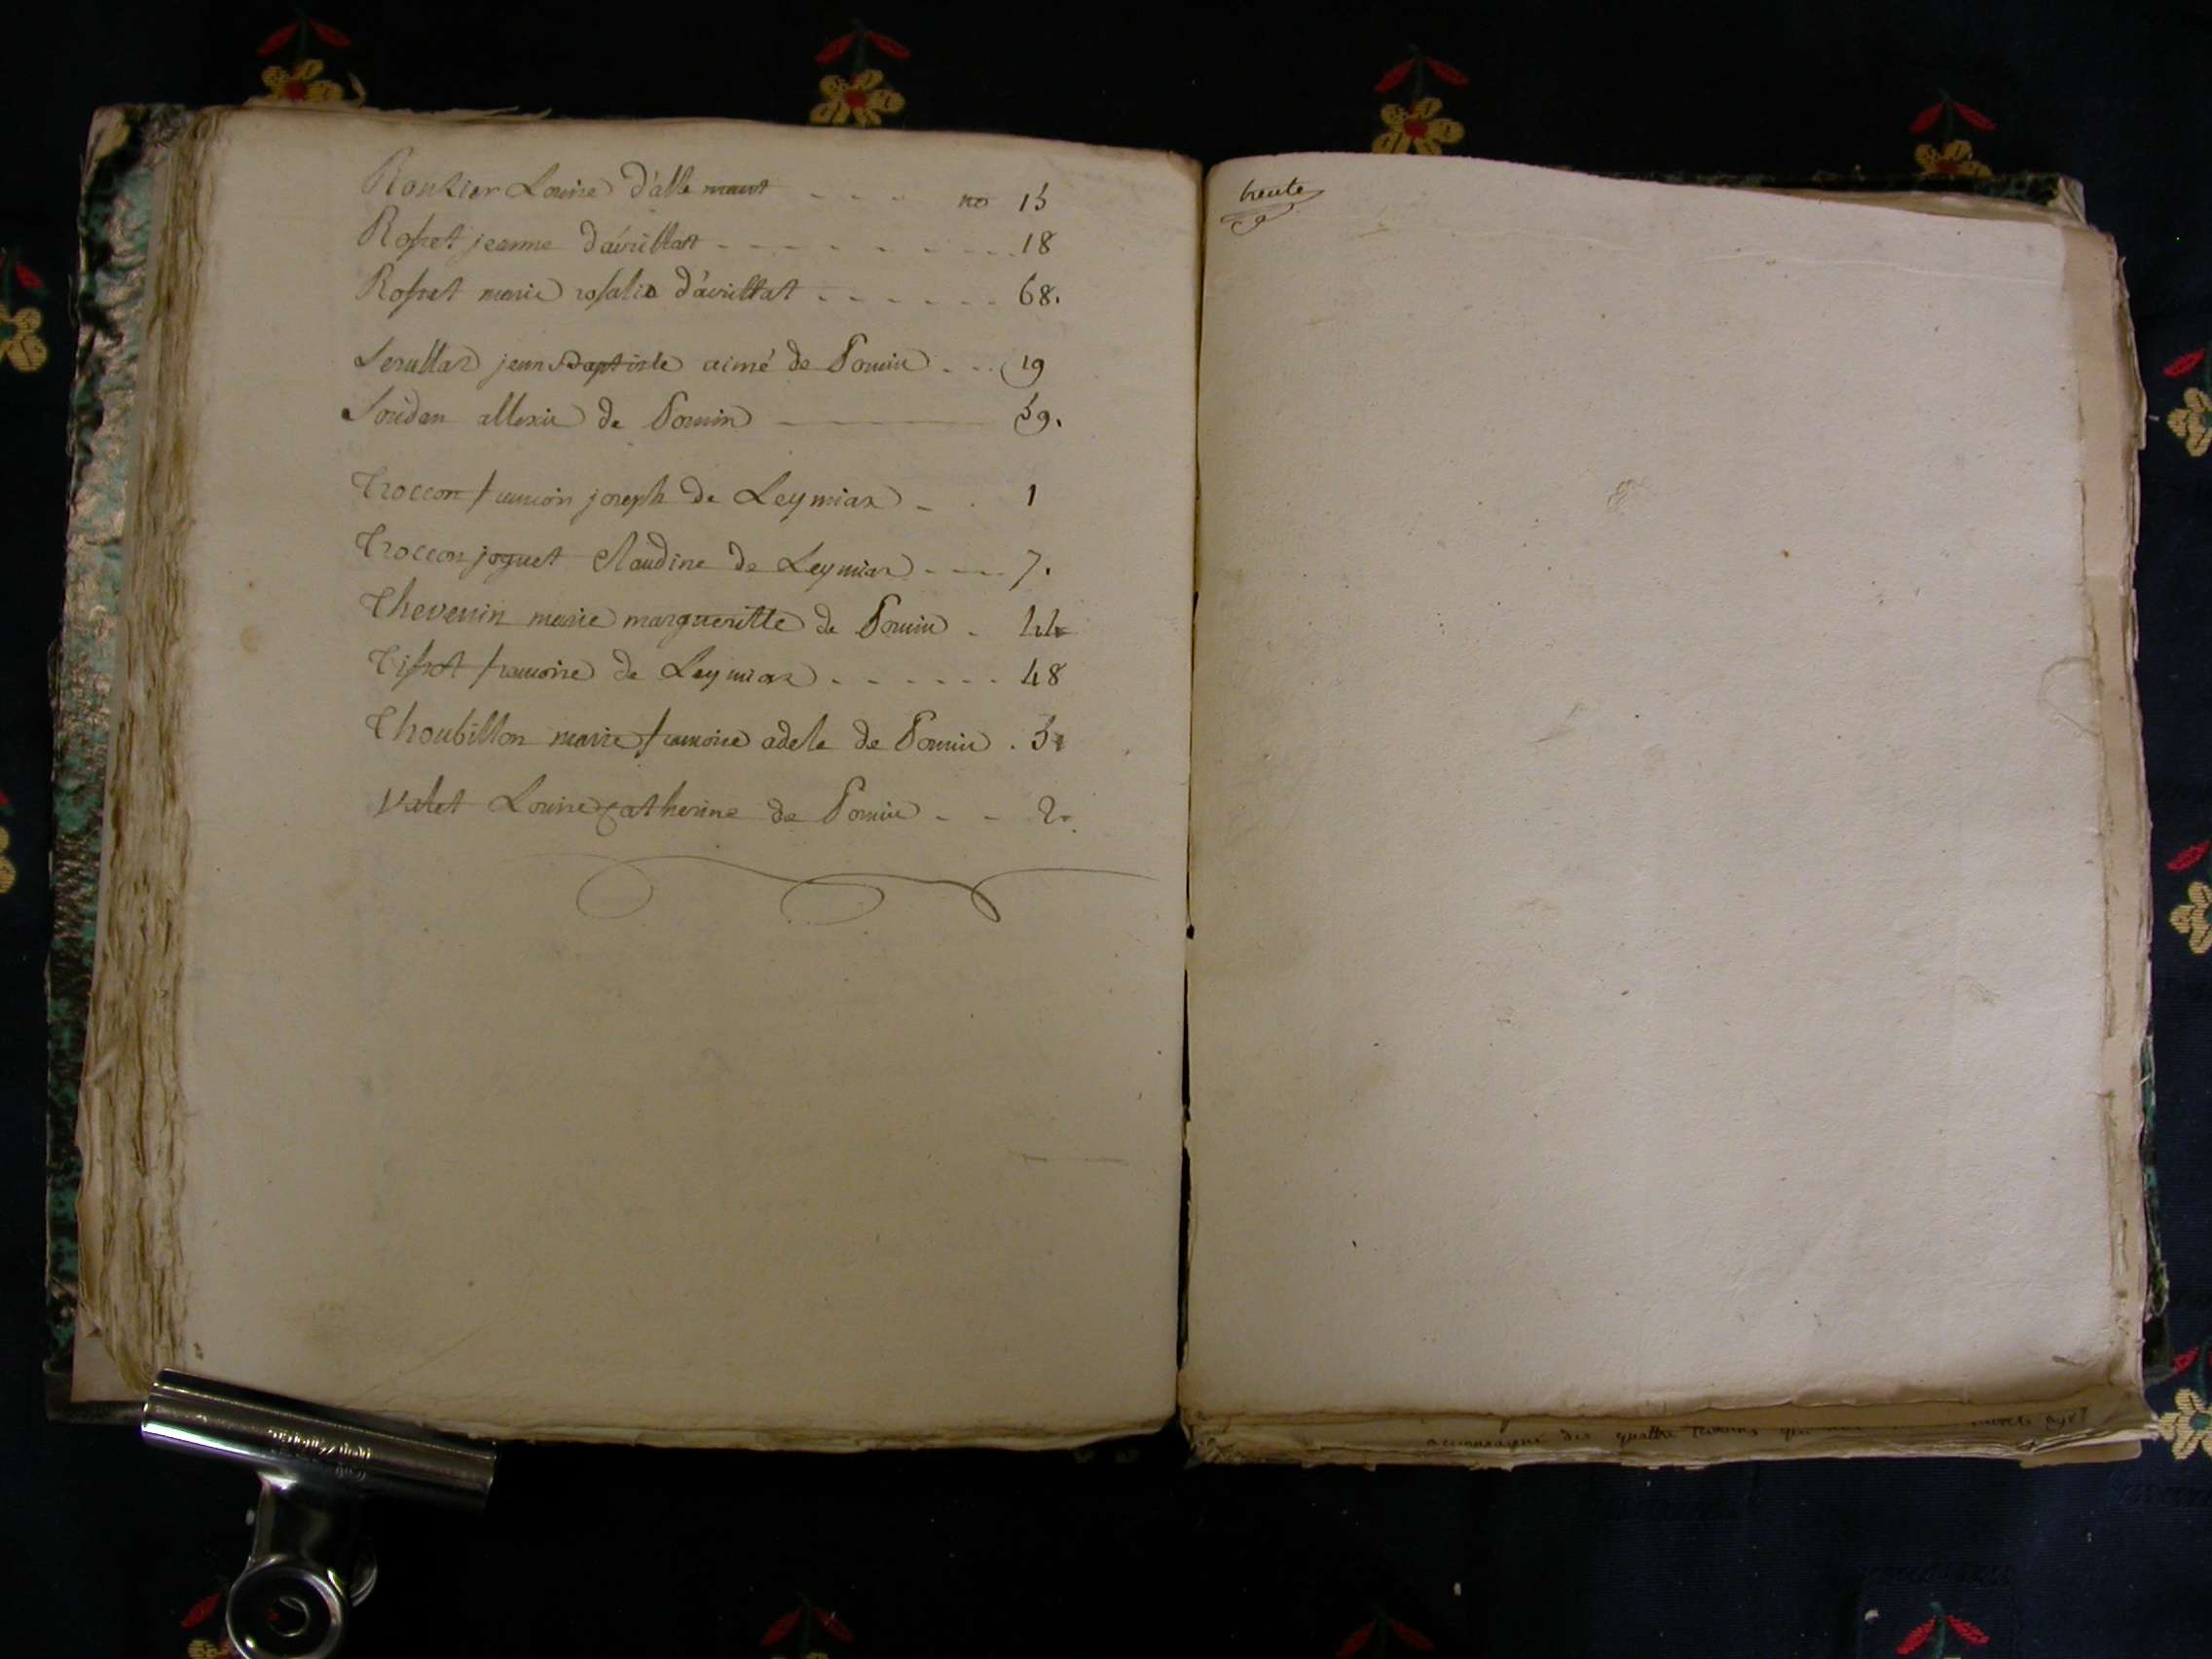 Rouhier Louise d'allemant - - - - no 15
Rosset jeanne d'avrillat - - - - - - - - 18
Rosset marie rosalie d'avrillat - - - - - - 68.
Serullaz jean Baptiste aimé de Poncin - - - 19
Soudan allexis de Poncin ——— 59.
Troccon francois joseph de Leymiaz - - 1
Troccon joguet Claudine de Leymiaz - - - - 7.
Thevenin marie margueritte de Poncin - 44
Tissot francoise de Leymiaz - - - - - - 48
Thoubillon marie francoise adele de Poncin . 51
Valet Louise Catherine de Poncin - - 2.
trente
accompagné des quattre temoins